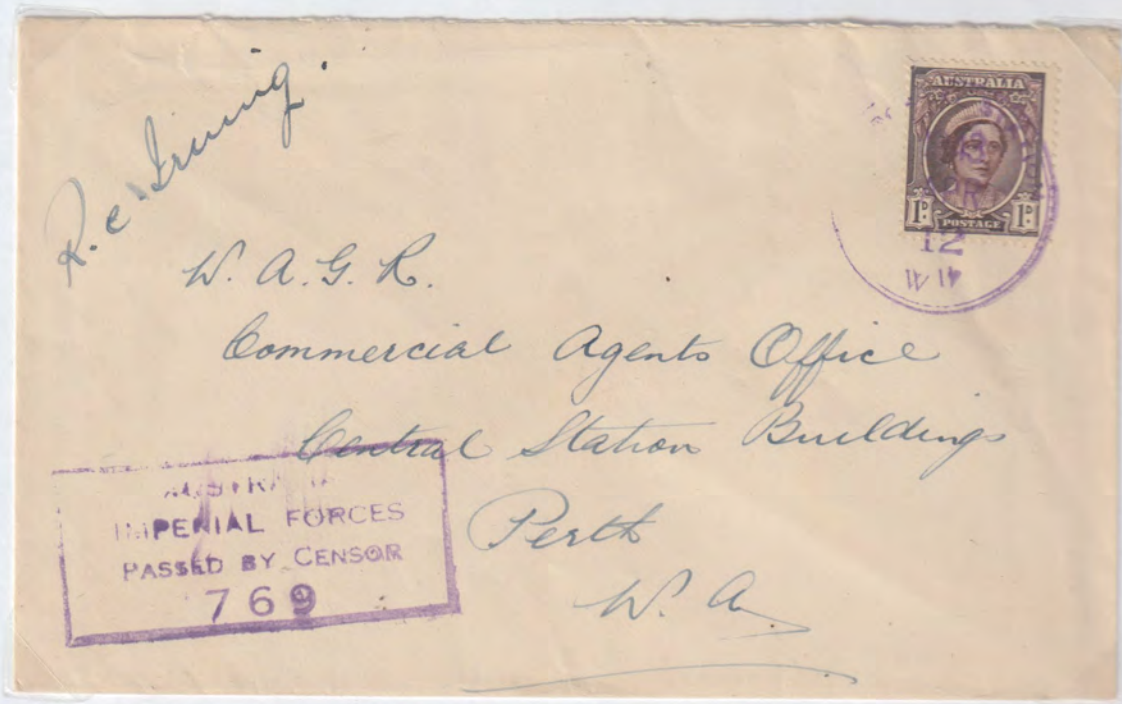 R. C. Irving.
AUSTRALIA
1D 1D
POSTAGE
12
W. A. G. R.
Commercial Agents Office
Central Station Buildings
Perth
W. A.
IMPERIAL FORCES
PASSED BY CENSOR
769